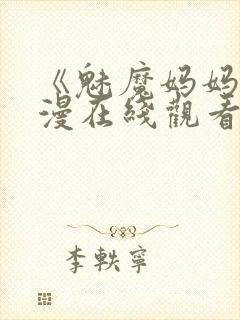 《魅魔妈妈
漫在綫觀看
李軼寧